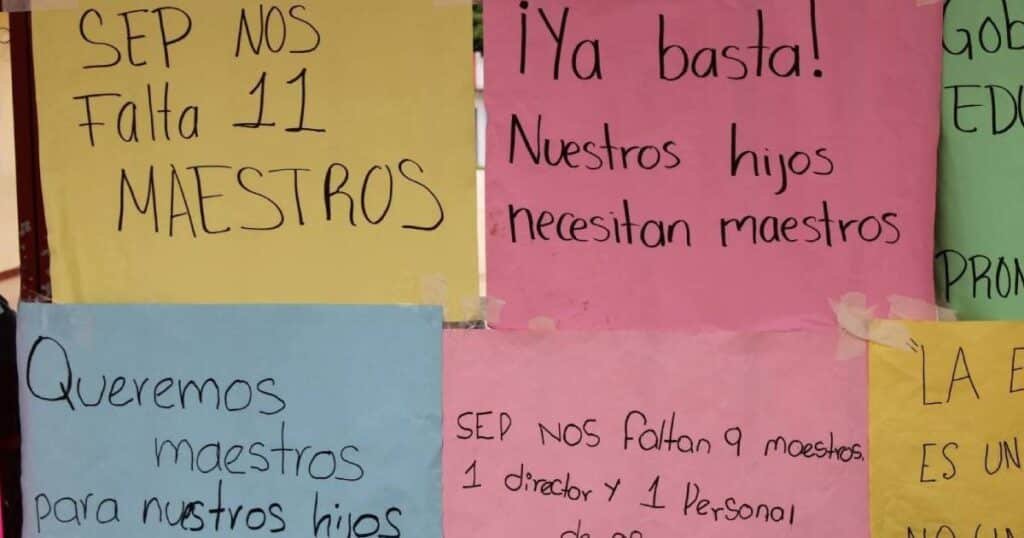 SEP NOS
Falta 11
MAESTROS
¡Ya basta!
Nuestros hijos
necesitan maestros
Gob
EDU
PRON
Queremos
maestros
para nuestros hijos
SEP NOS faltan 9 maestros.
1 director y 1 Personal
"LA E
ES UN